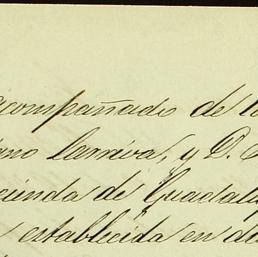 acompañado de lo
ano Larriva, y D.
cienda de Guadalu
establecida en di